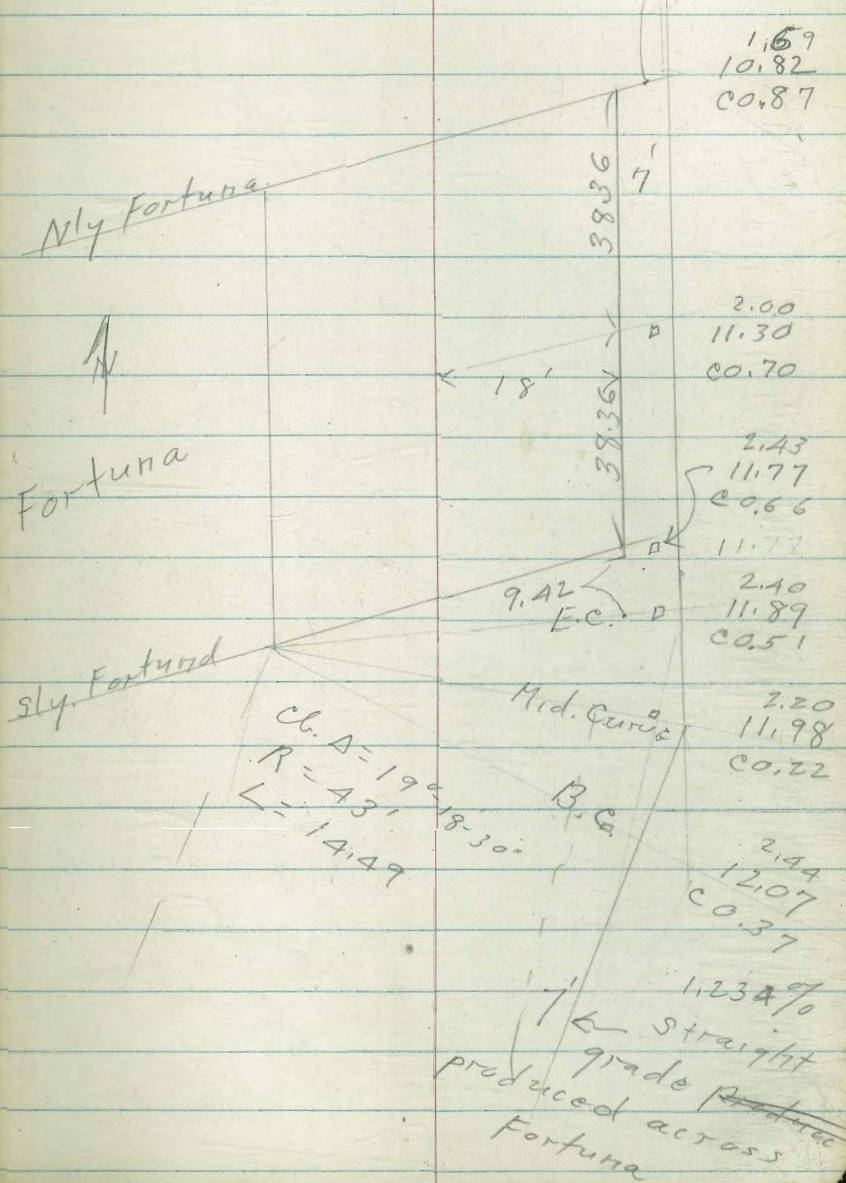 1.69
10.82
C0.87
38.36
7'
Nly Fortuna
N
2.00
11.30
C0.70
18'
38.36
2.43
11.77
C0.66
Fortuna
11.77
9.42
E.C.
2.40
11.89
C0.51
Sly. Fortuna
Mid. Curve
2.20
11.98
C0.22
Cb. Δ = 19°-18-30"
R = 43'
L = 14.49
B.C.
2.44
12.07
C0.37
7'
1.234%
Straight
grade Produce
produced across
Fortuna